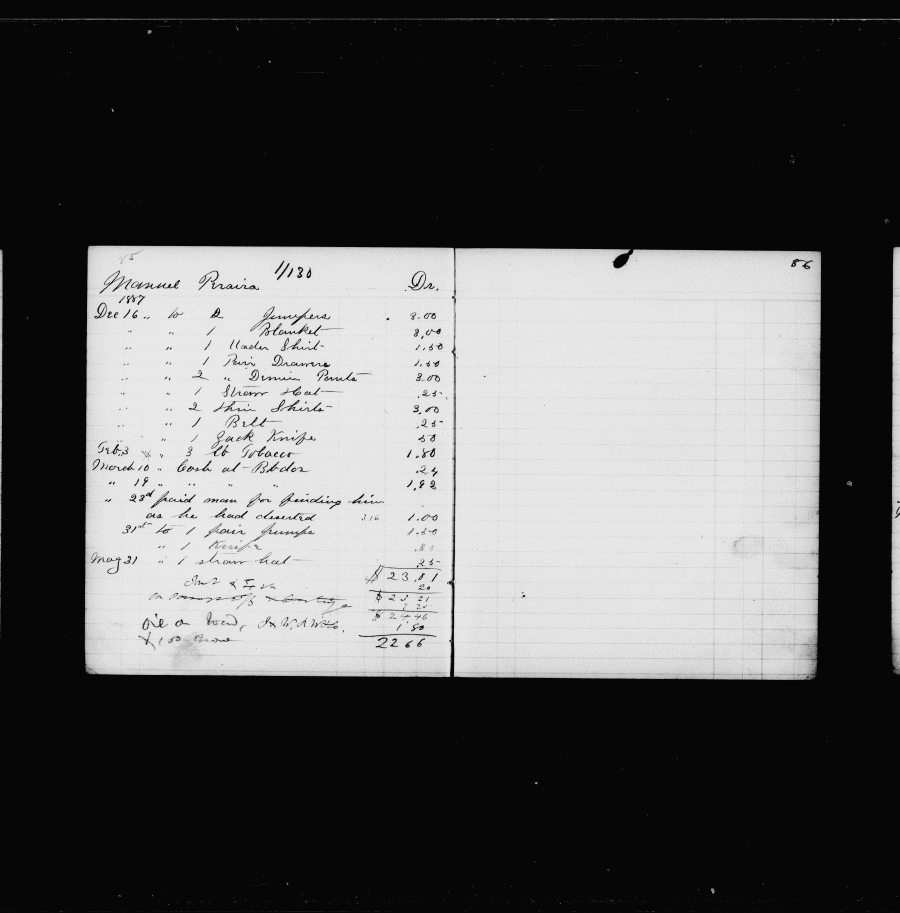 85
1/130
Manuel Peraira Dr.
1887
Dec 16 " to 2 Jumpers 3.00
" " 1 Blanket 3.00
" " 1 Under Shirt 1.50
" " 1 Pair Drawers 1.50
" " 2 " Denim Pants 3.00
" " 1 Straw Hat .25
" " 2 Thin Shirts 3.00
" " 1 Belt .25
" " 1 Jack Knife 50
Feb. 3 x " 3 lb Tobacco 1.80
March 10 " Cash at Bbdos .24
" 19 " " " " 1.92
" 23d paid man for finding him
as he had deserted 316 1.00
31st to 1 pair pumps 1.50
" 1 Knife
May 31 " 1 straw hat .25
$ 23.81
20
$
$ 24 46
1.80
22 66
86